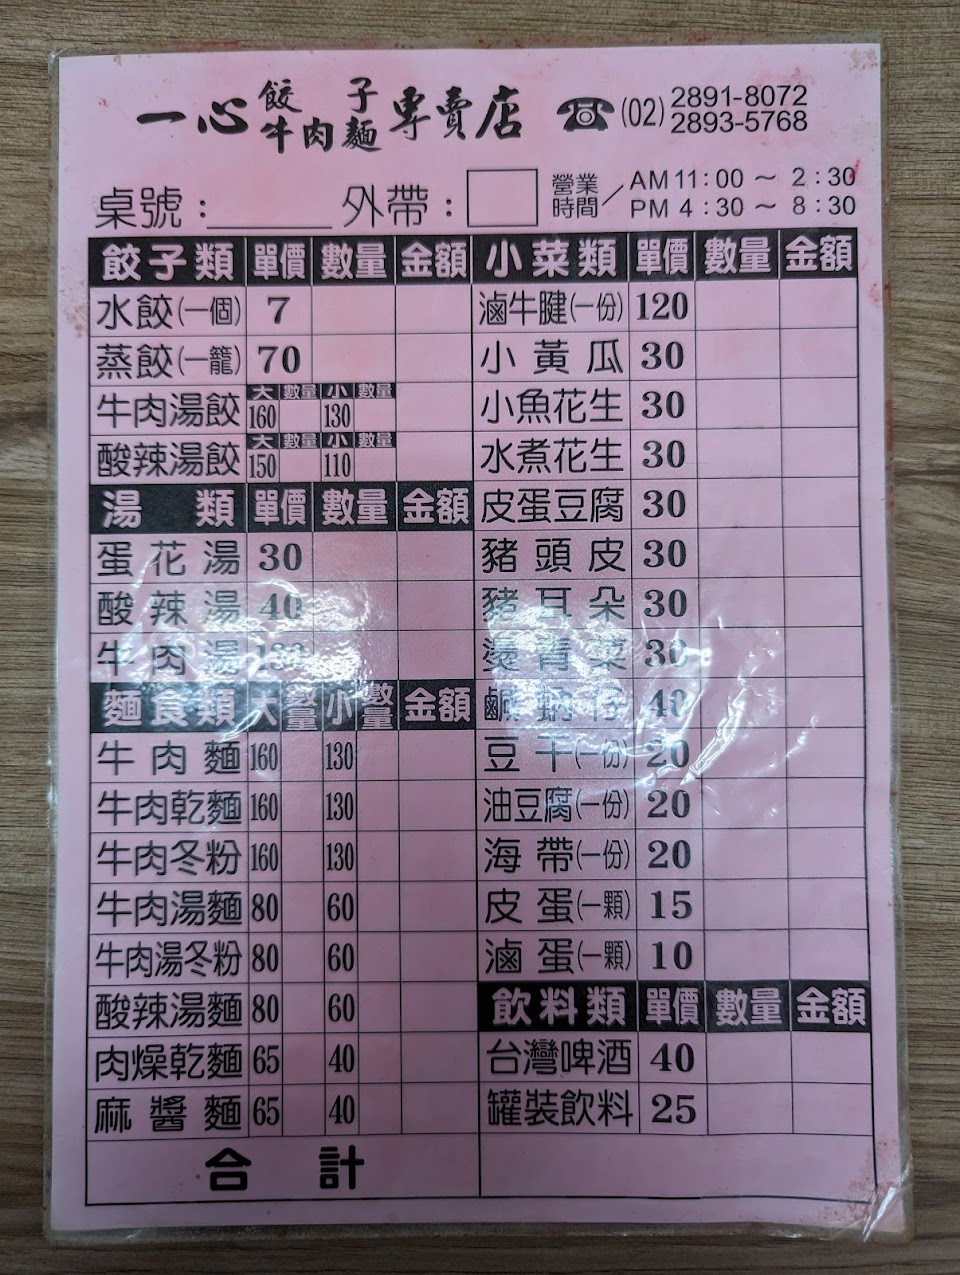 一心餃子牛肉麵專賣店 ☎(02)2891-8072
2893-5768
桌號：______ 外帶：□ 營業時間／AM 11：00 ～ 2：30
PM 4：30 ～ 8：30
餃子類 單價 數量 金額
水餃(一個) 7
蒸餃(一籠) 70
牛肉湯餃 大 數量 小 數量
160 130
酸辣湯餃 大 數量 小 數量
150 110
湯類 單價 數量 金額
蛋花湯 30
酸辣湯 40
牛肉湯
麵食類 大 數量 小 數量 金額
牛肉麵 160 130
牛肉乾麵 160 130
牛肉冬粉 160 130
牛肉湯麵 80 60
牛肉湯冬粉 80 60
酸辣湯麵 80 60
肉燥乾麵 65 40
麻醬麵 65 40
合計
小菜類 單價 數量 金額
滷牛腱(一份) 120
小黃瓜 30
小魚花生 30
水煮花生 30
皮蛋豆腐 30
豬頭皮 30
豬耳朵 30
燙青菜 30
鹹蜆仔 40
豆干(一份) 20
油豆腐(一份) 20
海帶(一份) 20
皮蛋(一顆) 15
滷蛋(一顆) 10
飲料類 單價 數量 金額
台灣啤酒 40
罐裝飲料 25